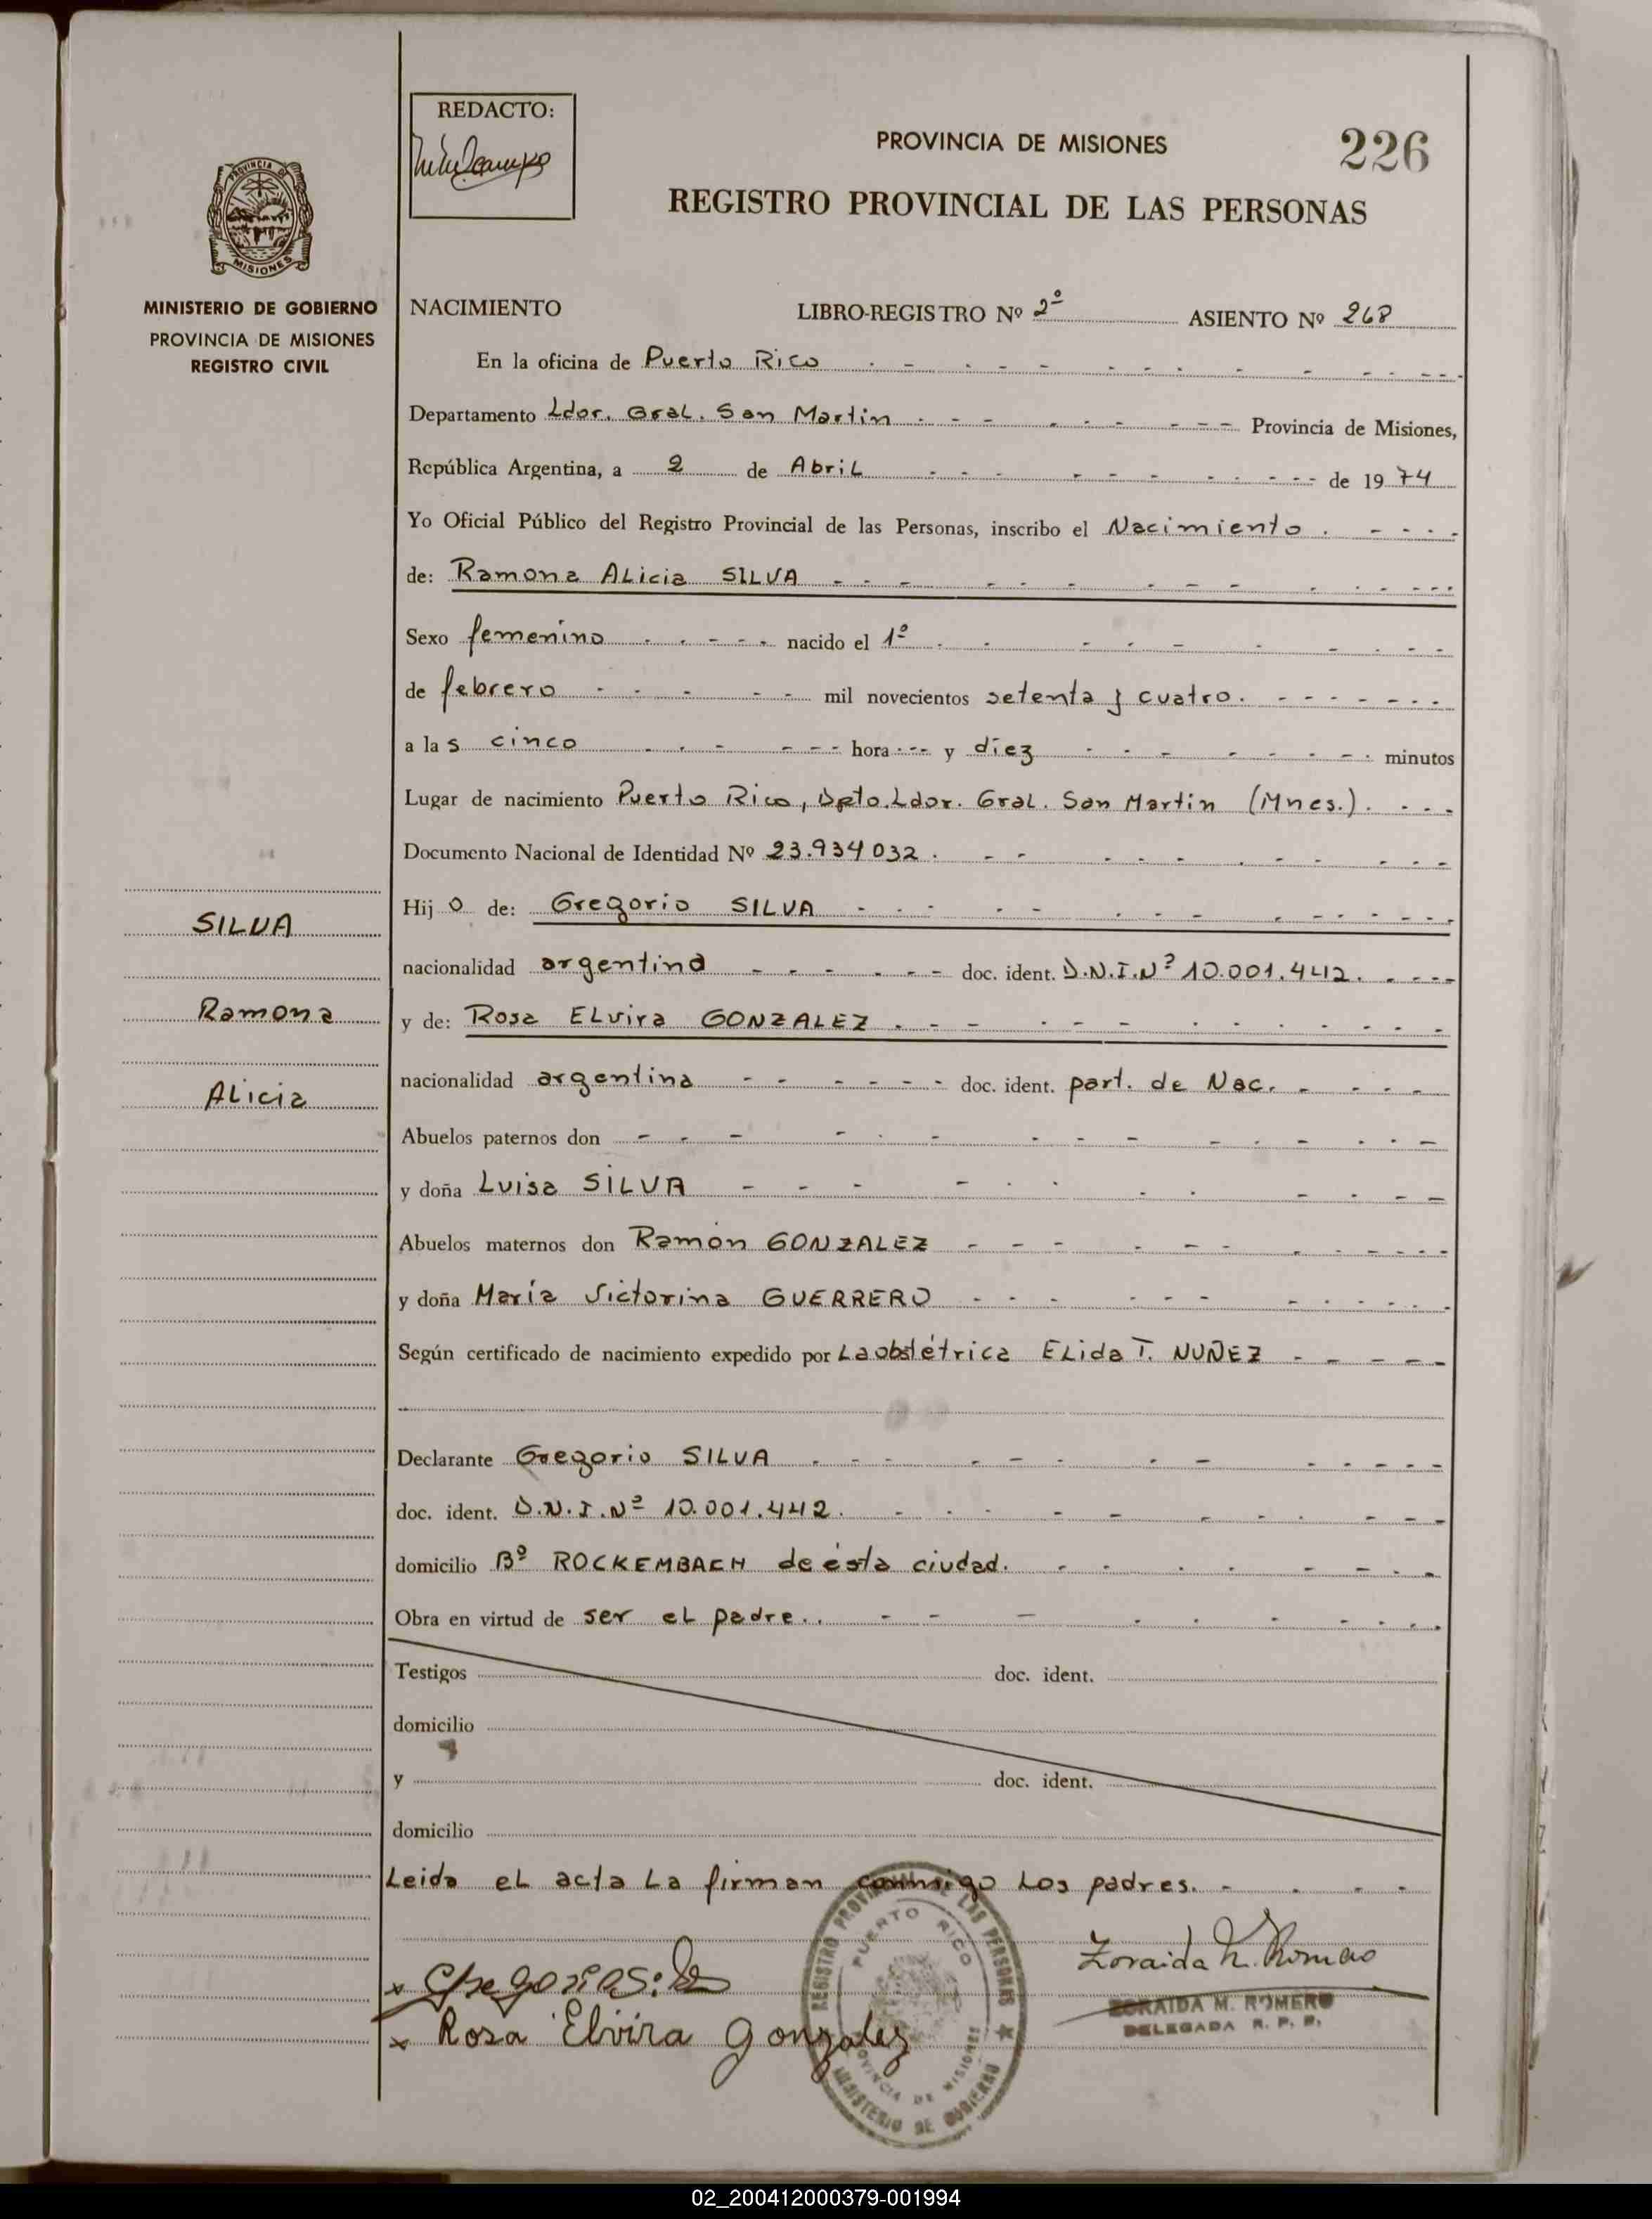 REDACTO:
PROVINCIA DE MISIONES
226
REGISTRO PROVINCIAL DE LAS PERSONAS
PROVINCIA DE
MISIONES
MINISTERIO DE GOBIERNO
PROVINCIA DE MISIONES
REGISTRO CIVIL
NACIMIENTO LIBRO-REGISTRO Nº 2º ASIENTO Nº 268
En la oficina de Puerto Rico
Departamento Ldor. Gral. San Martin Provincia de Misiones,
República Argentina, a 2 de Abril de 1974
Yo Oficial Público del Registro Provincial de las Personas, inscribo el Nacimiento
de: Ramona Alicia SILVA
Sexo femenino nacido el 1º
de febrero mil novecientos setenta y cuatro.
a las cinco hora y diez minutos
Lugar de nacimiento Puerto Rico, Dpto. Ldor. Gral. San Martin (Mnes.).
Documento Nacional de Identidad Nº 23.934032.
SILVA
Ramona
Alicia
Hijo de: Gregorio SILVA
nacionalidad argentina doc. ident. D.N.I.Nº 10.001.442.
y de: Rosa Elvira GONZALEZ
nacionalidad argentina doc. ident. part. de Nac.
Abuelos paternos don
y doña Luisa SILVA
Abuelos maternos don Ramón GONZALEZ
y doña María Victorina GUERRERO
Según certificado de nacimiento expedido por La obstétrica Elida T. NUÑEZ
Declarante Gregorio SILVA
doc. ident. D.N.I.Nº 10.001.442.
domicilio Bº ROCKEMBACH de ésta ciudad.
Obra en virtud de ser el padre..
Testigos doc. ident.
domicilio
y doc. ident.
domicilio
Leida el acta la firman conmigo los padres.
REGISTRO PROVINCIAL DE LAS PERSONAS
PUERTO RICO
PROVINCIA DE MISIONES
MINISTERIO DE GOBIERNO
Zoraida M. Romero
ZORAIDA M. ROMERO
DELEGADA R. P. P.
x Gregorio Silva
x Rosa Elvira Gonzalez
02_200412000379-001994